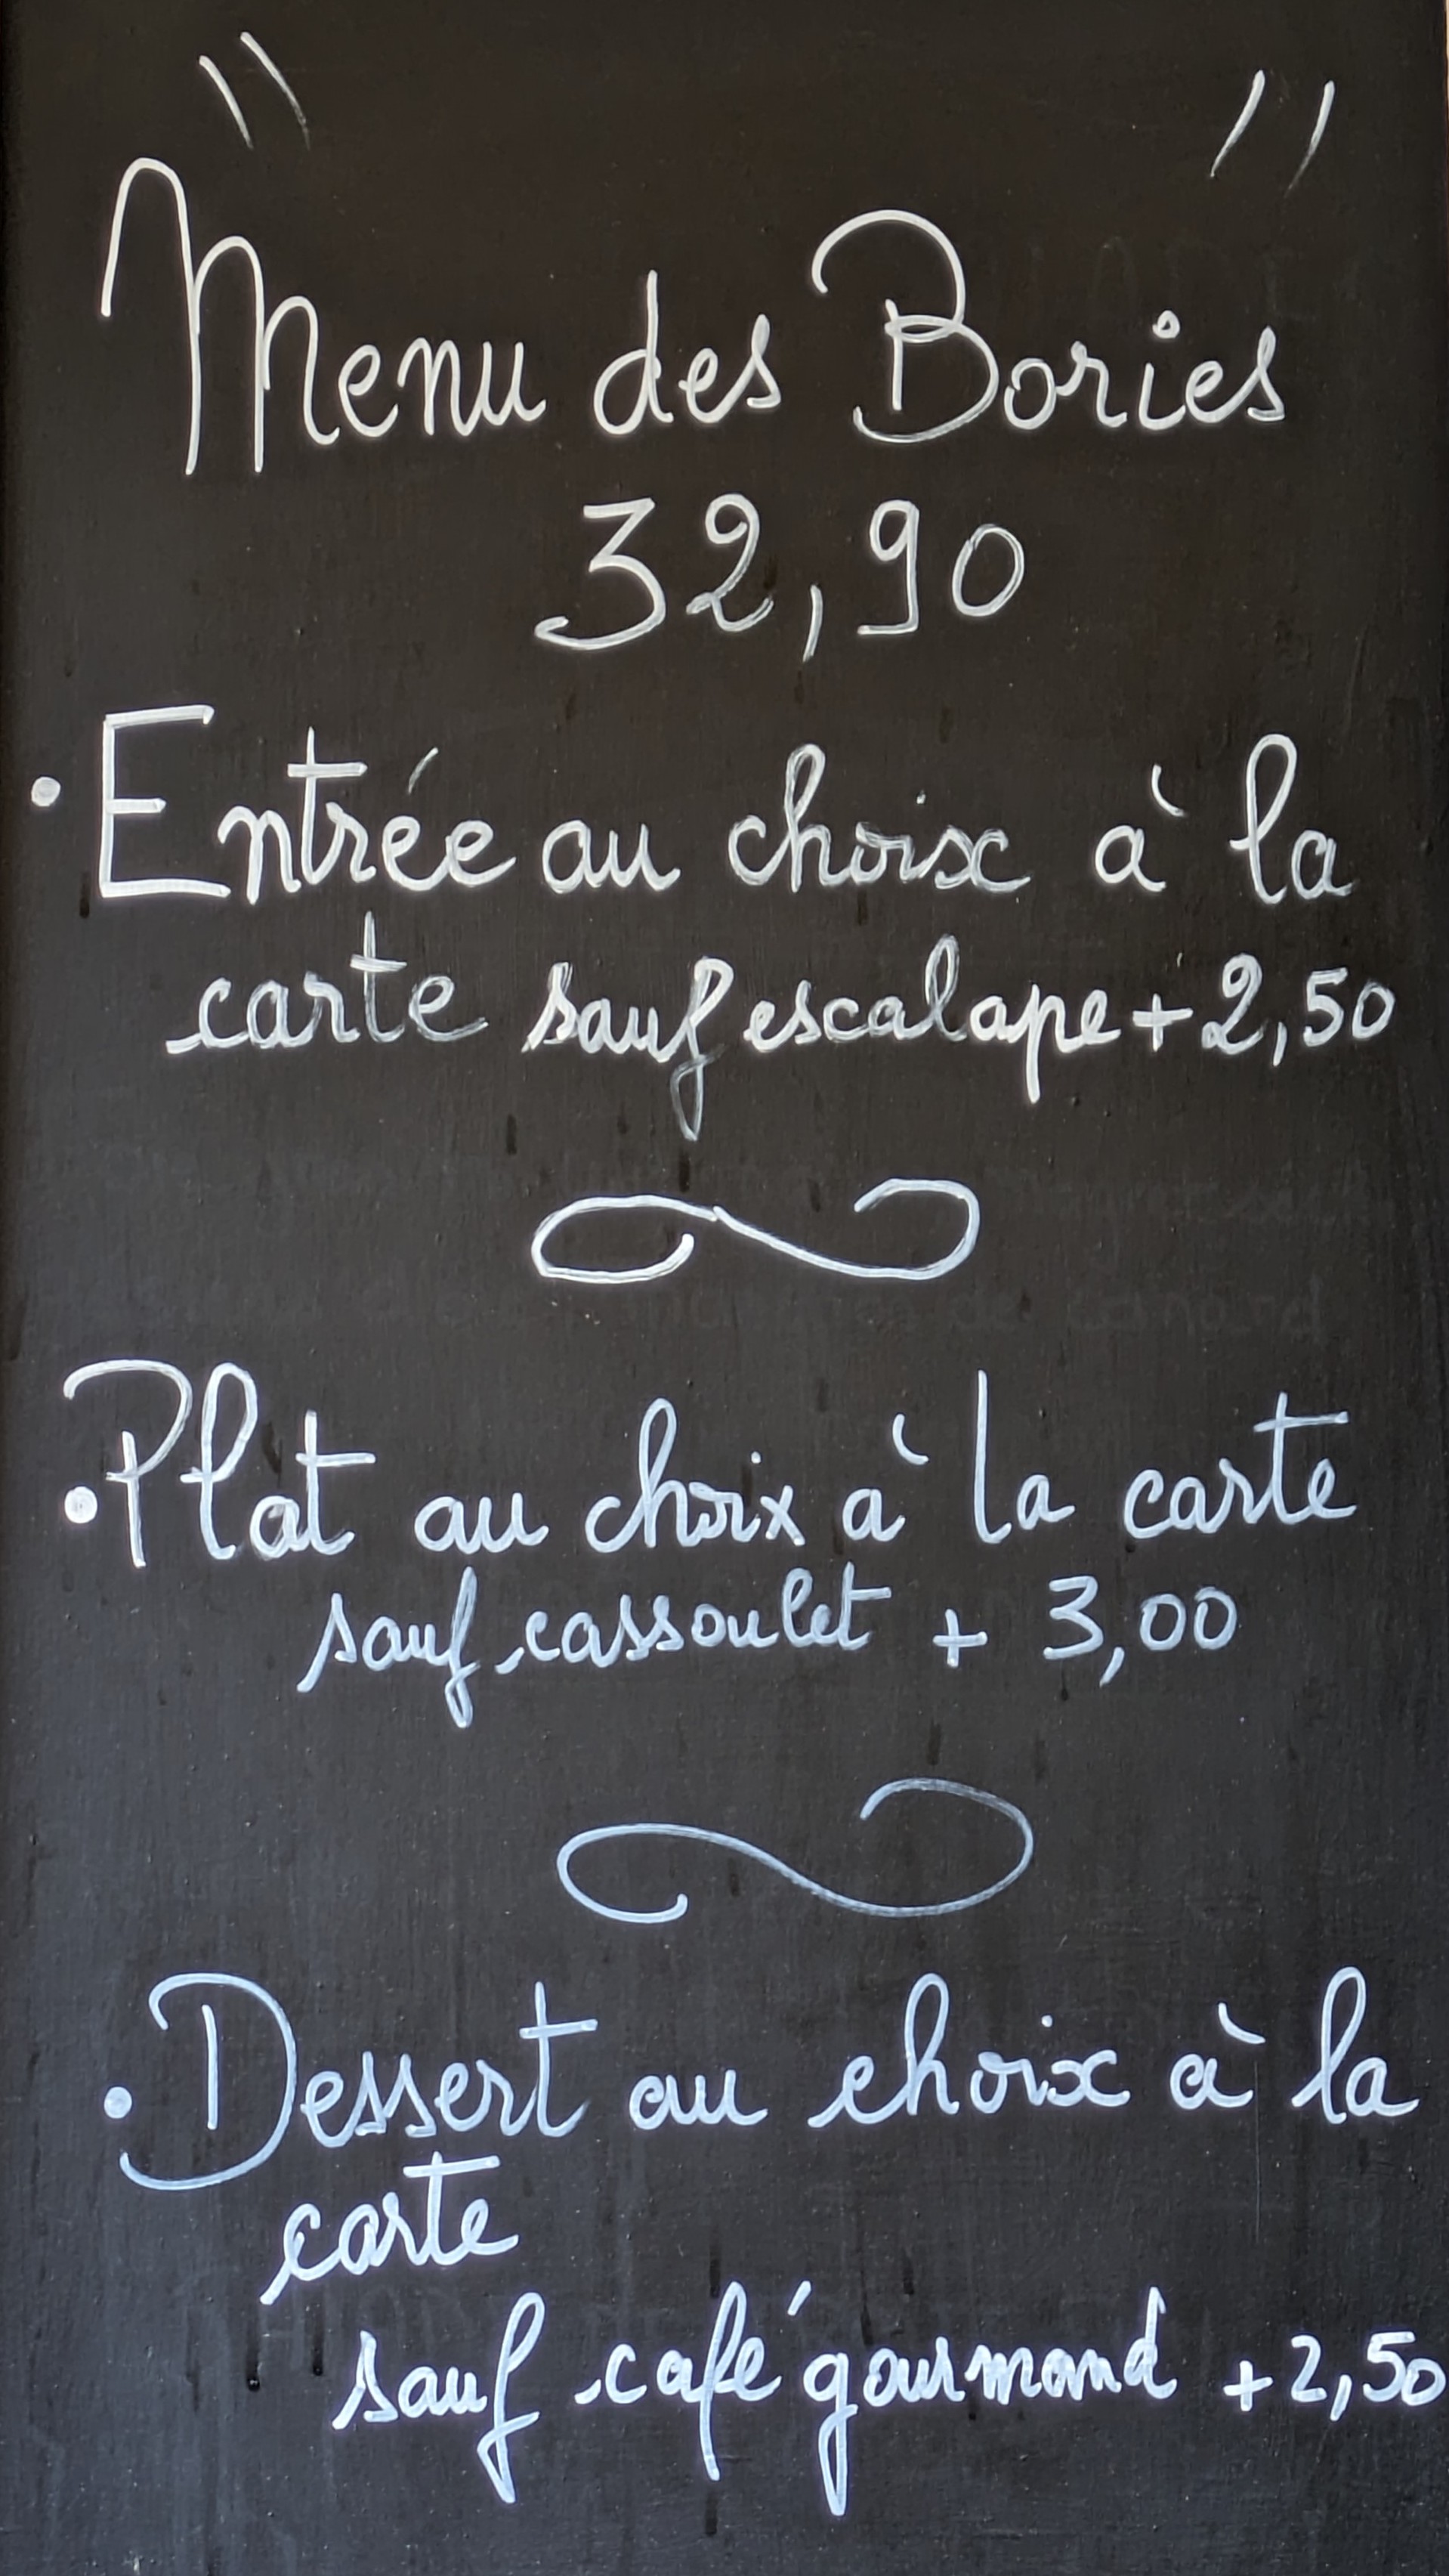 " Menu des Bories "
32,90
• Entrée au choix à la
carte sauf escalape + 2,50
• Plat au choix à la carte
sauf cassoulet + 3,00
• Dessert au choix à la
carte
sauf café gourmand + 2,50